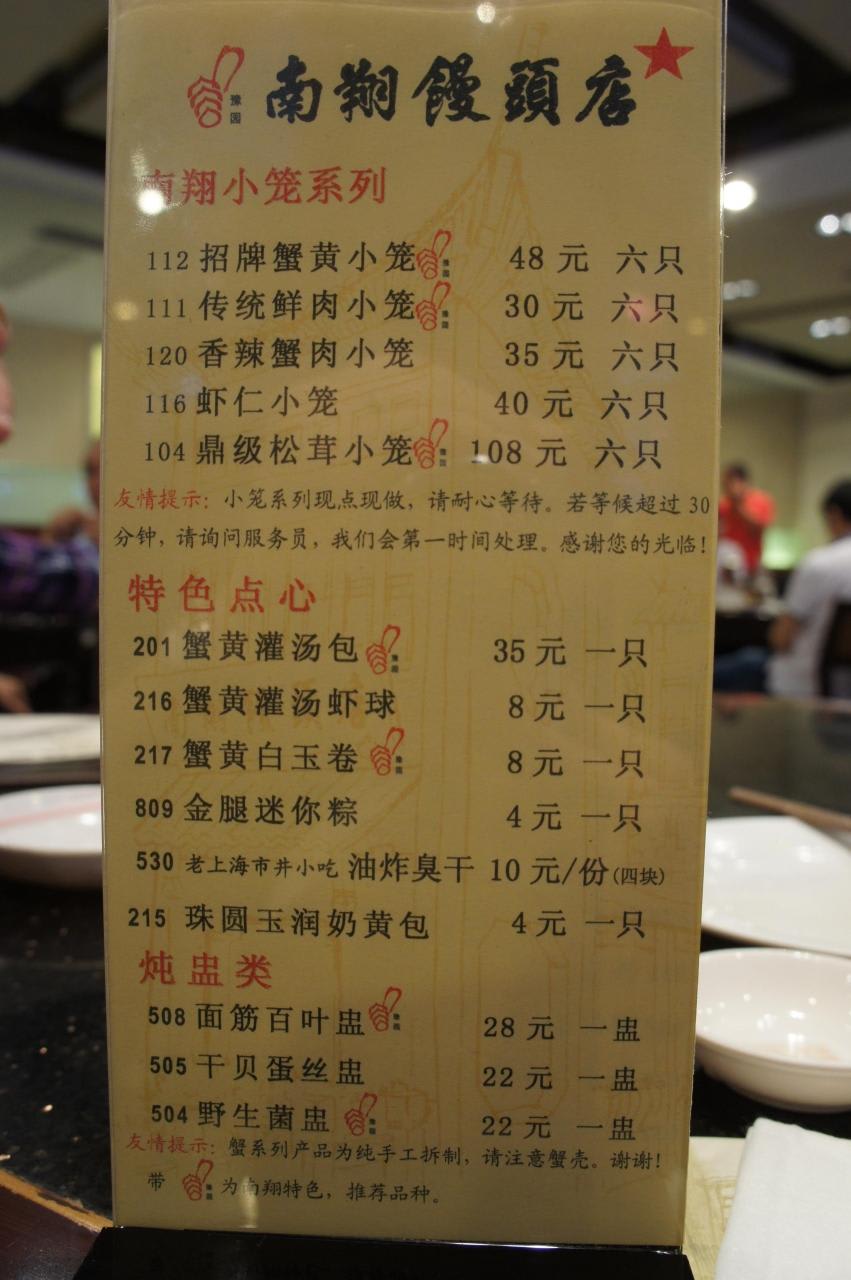 豫园 南翔饅頭店
南翔小笼系列
112 招牌蟹黄小笼 豫园 48 元 六只
111 传统鲜肉小笼 豫园 30 元 六只
120 香辣蟹肉小笼 35 元 六只
116 虾仁小笼 40 元 六只
104 鼎级松茸小笼 豫园 108 元 六只
友情提示：小笼系列现点现做，请耐心等待。若等候超过 30
分钟，请询问服务员，我们会第一时间处理。感谢您的光临！
特色点心
201 蟹黄灌汤包 豫园 35 元 一只
216 蟹黄灌汤虾球 8 元 一只
217 蟹黄白玉卷 豫园 8 元 一只
809 金腿迷你粽 4 元 一只
530 老上海市井小吃 油炸臭干 10 元/份(四块)
215 珠圆玉润奶黄包 4 元 一只
炖盅类
508 面筋百叶盅 豫园 28 元 一盅
505 干贝蛋丝盅 22 元 一盅
504 野生菌盅 豫园 22 元 一盅
友情提示：蟹系列产品为纯手工拆制，请注意蟹壳。谢谢！
带 豫园 为南翔特色，推荐品种。